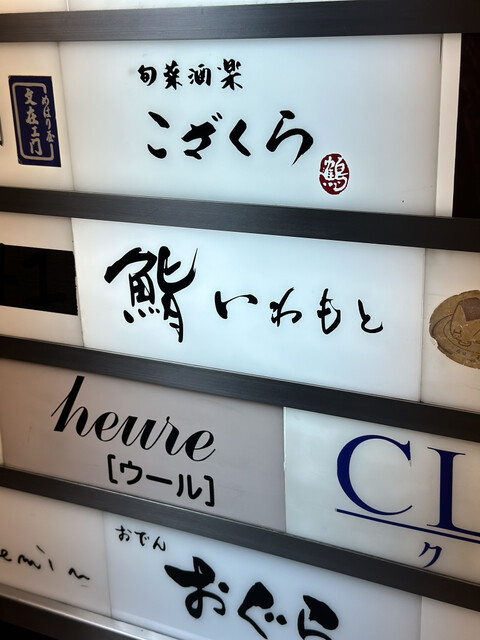 旬菜酒楽
こざくら
鶴
めはり屋
文在エ門
鮨 いわもと
heure
[ウール]
CL
ク
emin
おでん
おぐら